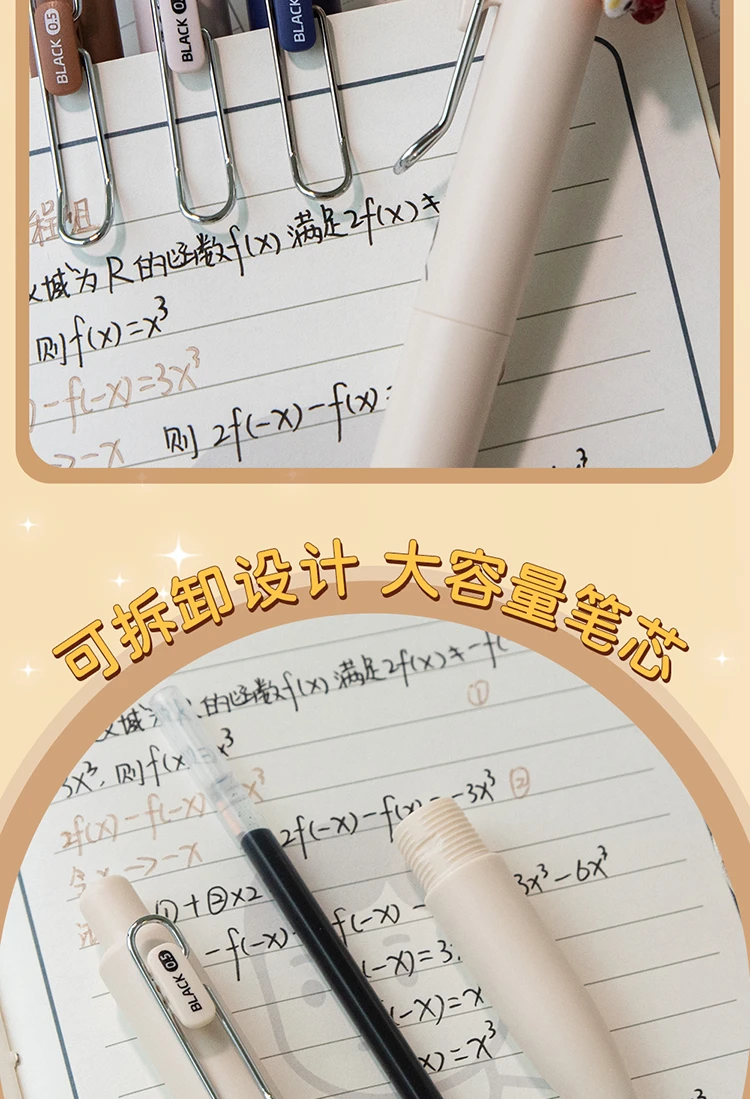 BLACK 0.5
BLACK 0.5
BLACK
程组
域为R的函数f(x)满足2f(x)+
则f(x)=x³
-f(-x)=3x³
->-x 则2f(-x)-f(x)=
x³
可拆卸设计 大容量笔芯
域 的函数f(x)满足2f(x)+-f(
①
3x³, 则f(x)=x³
2f(x)-f(-x) x³ 2f(-x)-f(x)=-3x³ ②
令x->-x
①+②×2 f(-x)- 3x³-6x³
-f(-x) (-x)=3
BLACK 0.5
(-x)=x
x)=x³